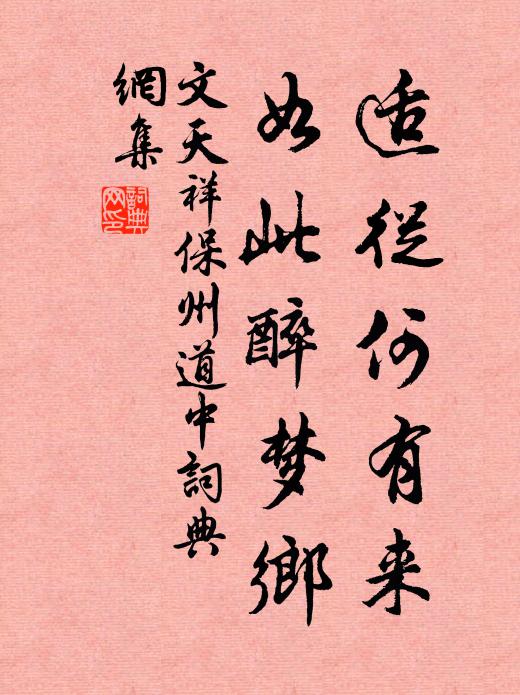 适従何有来
如此醉梦鄉
文天祥保州道中詞典
網集
詞典
网印